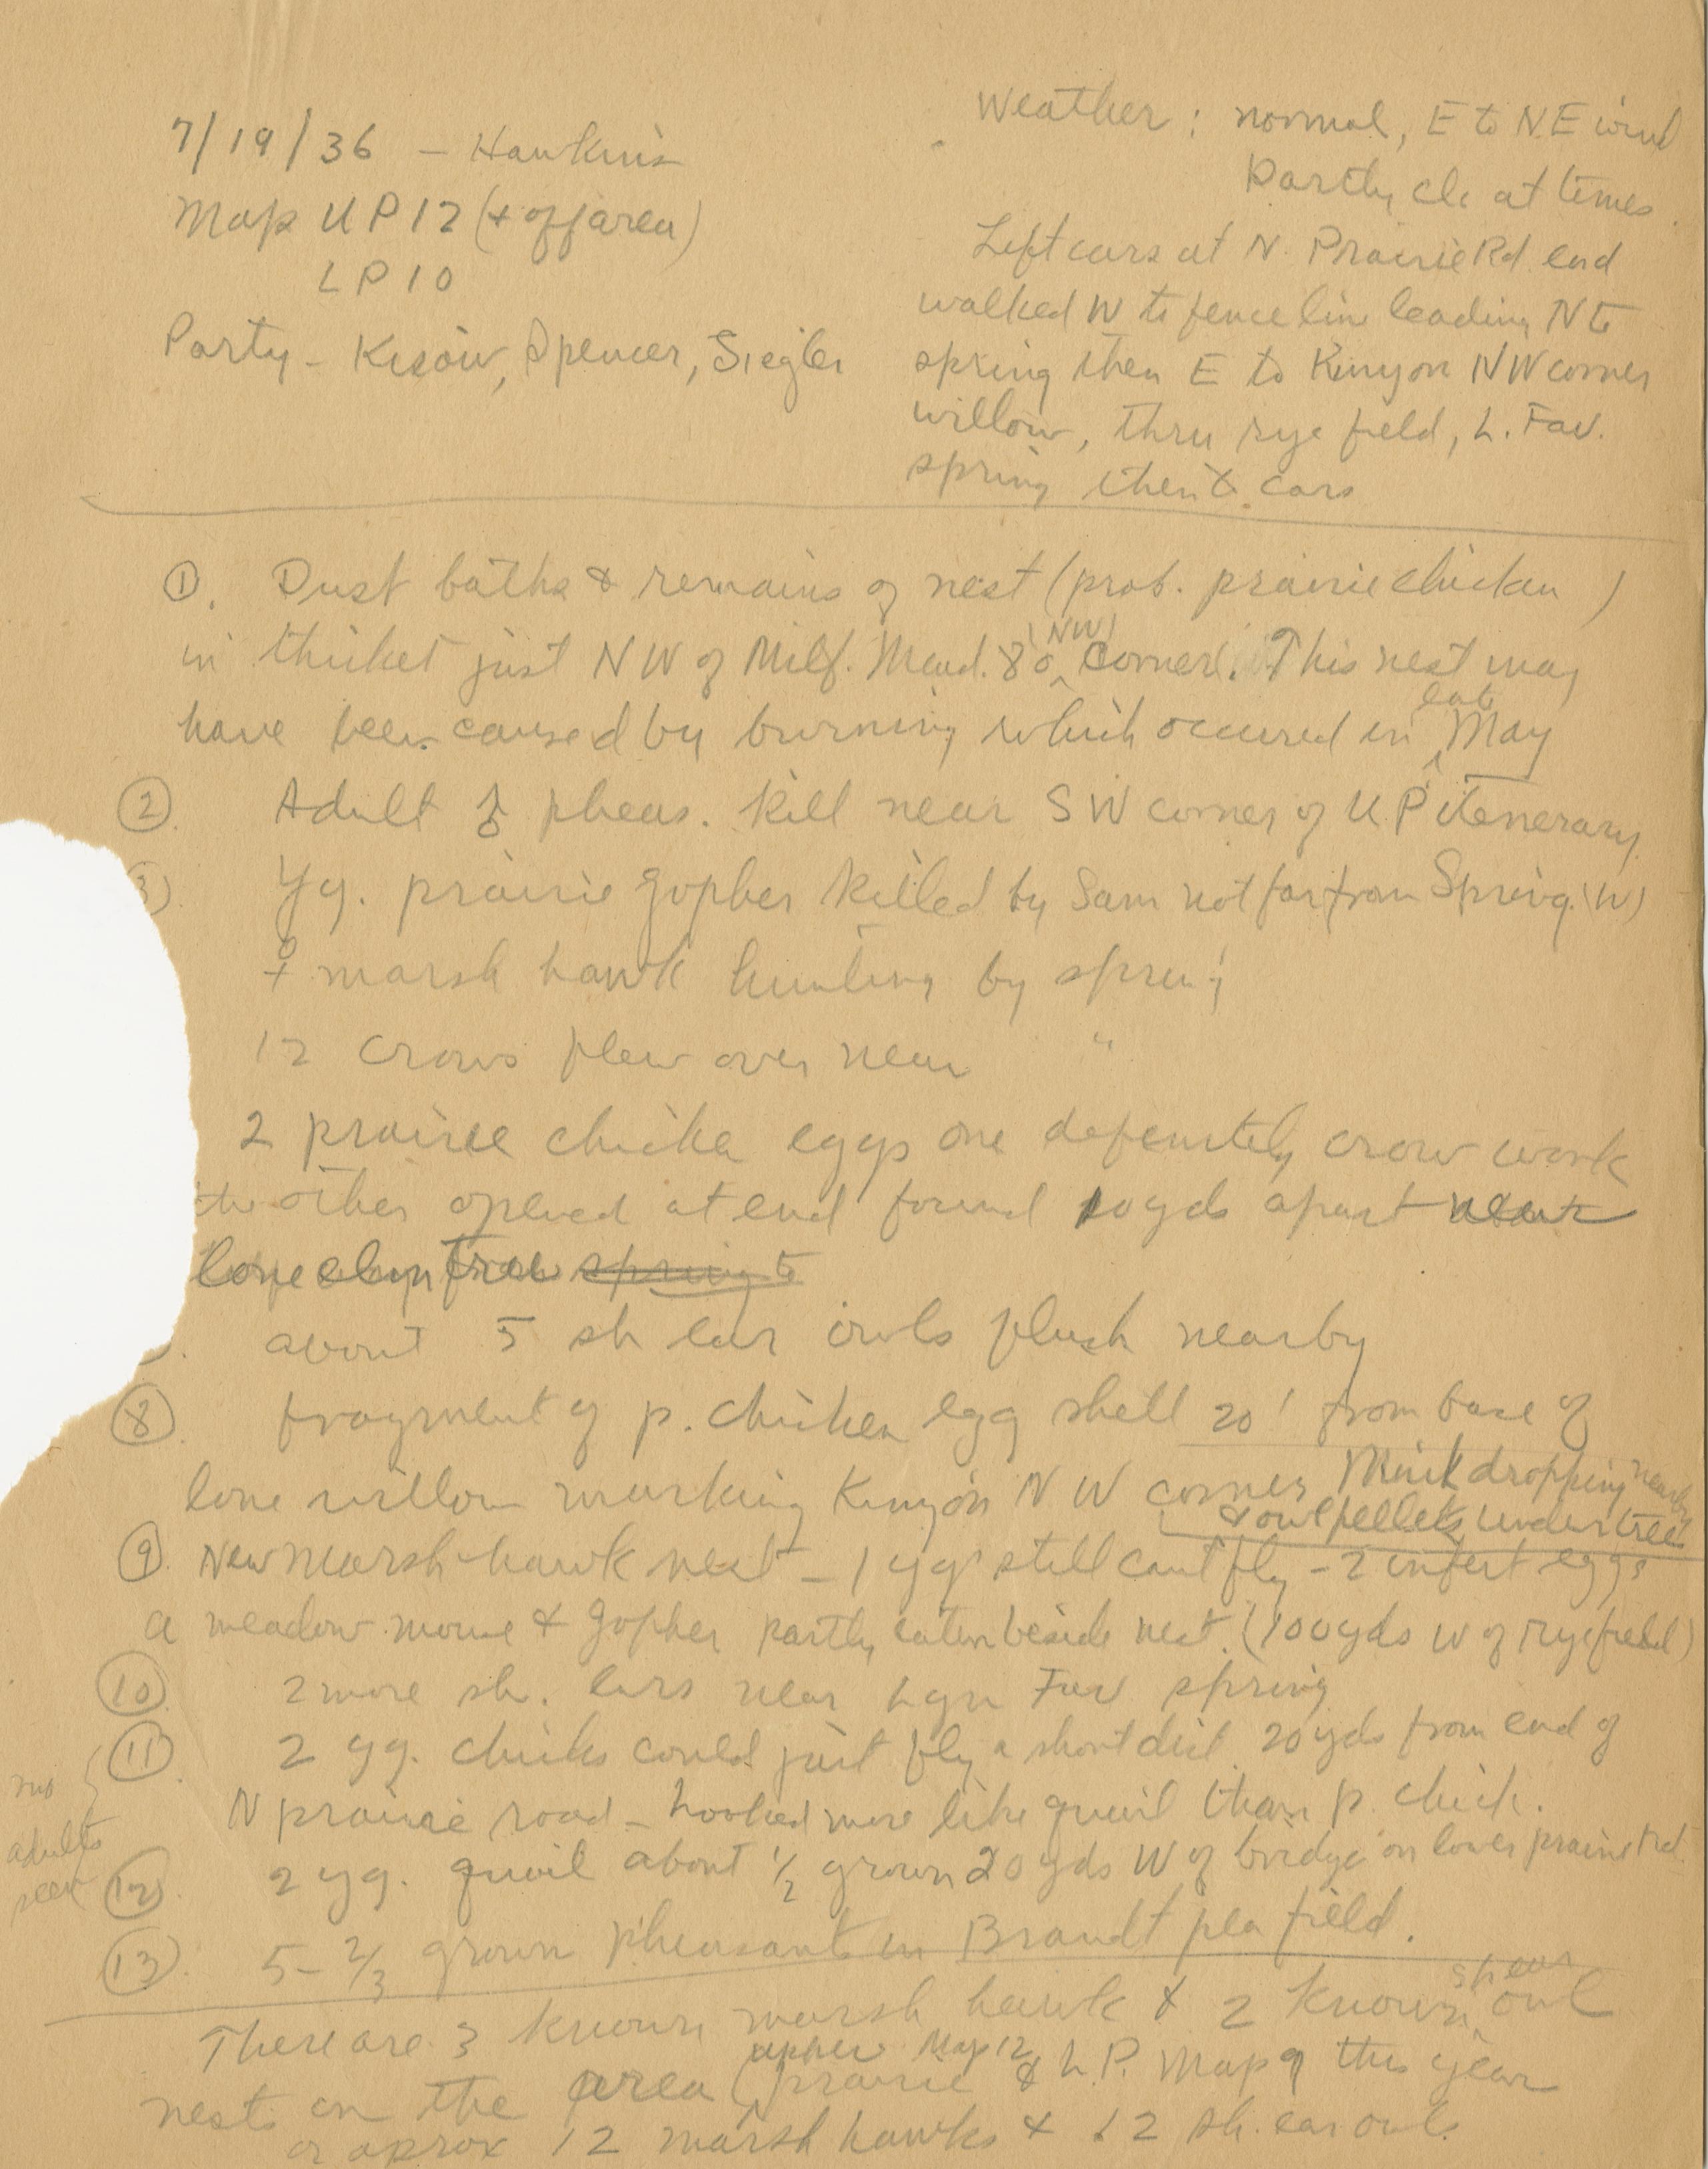 7/19/36 – Hawkins
Map UP12 (+ off area)
LP10
Party – Kesow, Spencer, Siegler
Weather: normal, E to N.E wind
Partly cl. at times.
Left cars at N. Prairie Rd. end
walked W to fence line leading N to
spring then E to Kinyon NW corner
willow, thru rye field, L. Fav.
spring then to cars
①. Dust baths & remains of nest (prob. prairie chicken )
in thicket just NW of Milf. Mead. 80 (NW) corner. This nest may
have been caused by burning which occured in late May
②. Adult ♂ pheas. kill near SW corner of U.P. itenerary
3). Yg. prairie gopher killed by Sam not far from Spring. (W)
♀ marsh hawk hunting by spring
12 crows flew over near "
2 prairie chicke eggs one defenitely crow work
the other opened at end found 10 yds apart near
lone elm tree spring to
about 5 sh ear owls flush nearby
⑧. fragment of p. chicken egg shell 20' from base of
lone willow marking Kinyon NW corner Mink dropping nearby
& owl pellets under tree
⑨. New marsh hawk nest – 1 yg still cant fly – 2 infert eggs
a meadow mouse & gopher partly eaten beside nest. (100 yds W of rye field)
⑩. 2 more sh. ears near Lgn Fav spring
⑪. 2 yg. chicks could just fly a short dist. 20 yds from end of
N prairie road – Looked more like quail than p. chick.
no
adults
seen
⑫. 2 yg. quail about ½ grown 20 yds W of bridge on lower prairie rd.
⑬. 5 – 2/3 grown pheasants in Brandt pea field.
There are 3 known marsh hawk & 2 known sh ear owl
nests on the area (upper prairie Map 12 & L.P. Map 9 this year
or aprox 12 marsh hawks & 12 sh. ear owls.